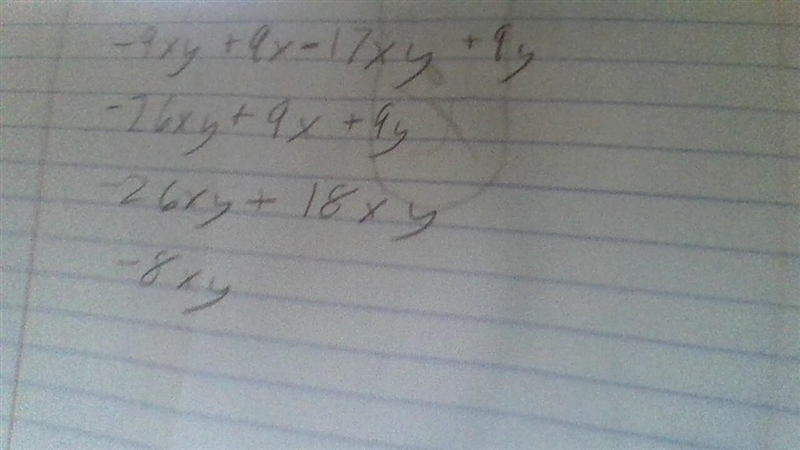 -9xy + 9x - 17xy + 9y
-26xy + 9x + 9y
-26xy + 18xy
-8xy